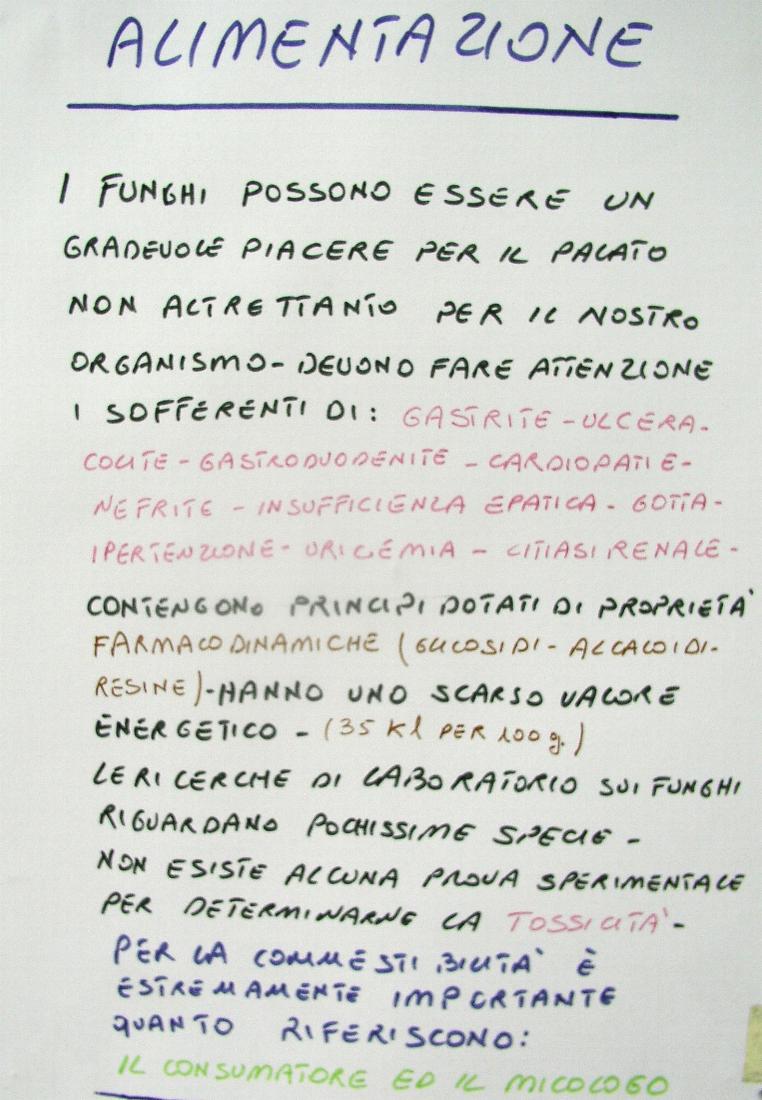 ALIMENTAZIONE
I FUNGHI POSSONO ESSERE UN
GRADEVOLE PIACERE PER IL PALATO
NON ALTRETTANTO PER IL NOSTRO
ORGANISMO- DEVONO FARE ATTENZIONE
I SOFFERENTI DI: GASTRITE - ULCERA-
COLITE - GASTRODUODENITE - CARDIOPATIE-
NEFRITE - INSUFFICIENZA EPATICA - GOTTA-
IPERTENZIONE- URICEMIA - LITIASI RENALE-
CONTENGONO PRINCIPI DOTATI DI PROPRIETA'
FARMACODINAMICHE (GLICOSIDI- ALCALOIDI-
RESINE)-HANNO UNO SCARSO VALORE
ENERGETICO - (35 Kl PER 100 g.)
LE RICERCHE DI LABORATORIO SUI FUNGHI
RIGUARDANO POCHISSIME SPECIE -
NON ESISTE ALCUNA PROVA SPERIMENTALE
PER DETERMINARNE LA TOSSICITA'-
PER LA COMMESTIBILITA' È
ESTREMAMENTE IMPORTANTE
QUANTO RIFERISCONO:
IL CONSUMATORE ED IL MICOLOGO